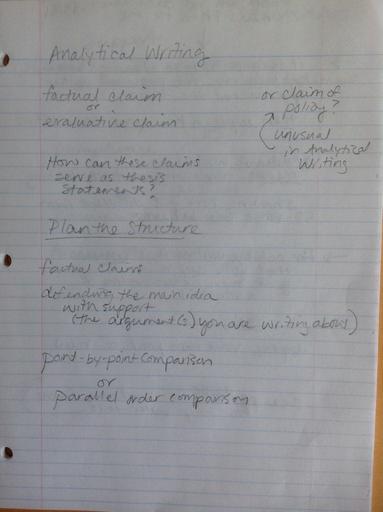 Analytical Writing
factual claim
or
evaluative claim
or claim of
policy?
unusual
in Analytical
Writing
How can these claims
serve as thesis
statements?
Plan the Structure
factual claims
defending the main idea
with support
(the argument(s) you are writing about)
point-by-point comparison
or
parallel order comparison